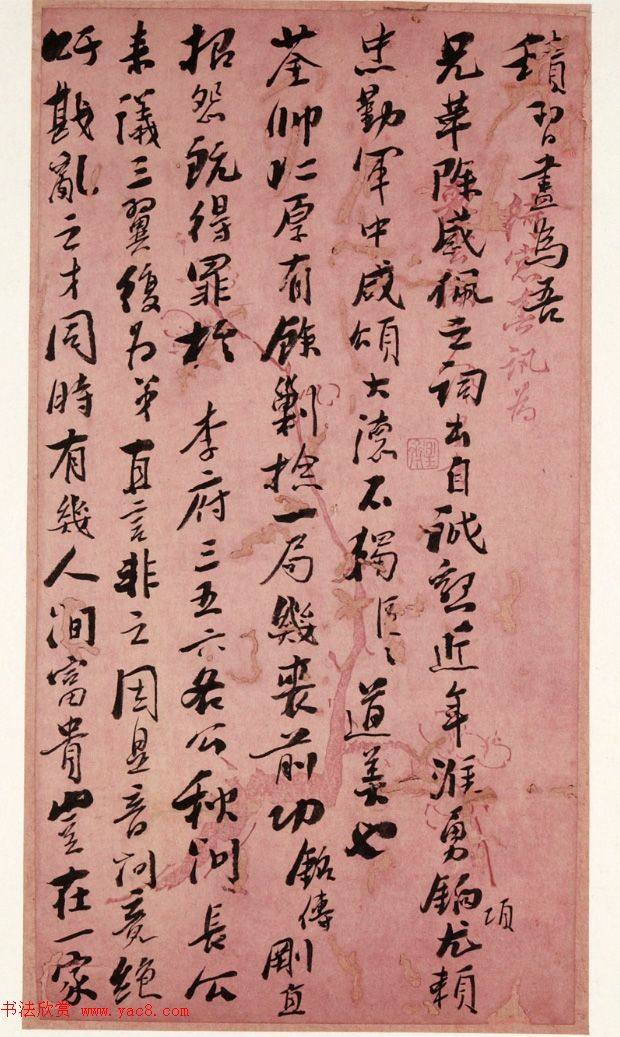 積習盡為吾
兄革除感佩之詞出自誠懇近年淮勇餉項尤賴
忠勤軍中咸頌大德不獨 道美也
荃帥仁厚有餘剿捻一局幾喪前功銘傳剛直
招怨既得罪於 李府三五六各公秋間長公
來議三翼復為弟直言非之因是音問竟絕
呼戡亂之才同時有幾人間富貴豈在一家
书法欣赏 www.yac8.com